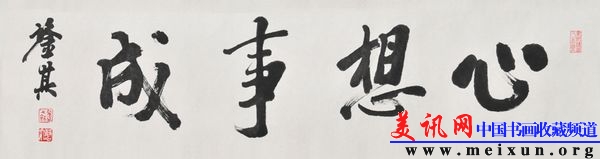 心想事成
美讯网中国书画收藏频道
www.meixun.org